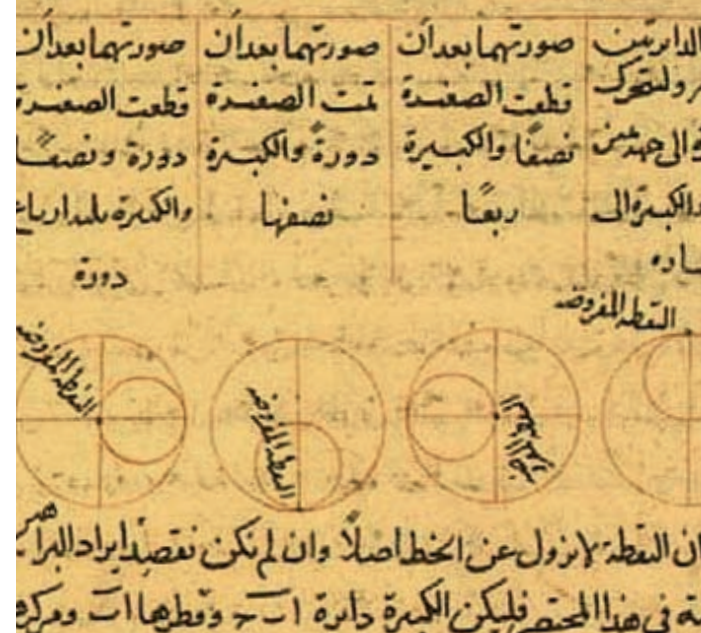 الدائرتين
ولتتحرك
الى جهة يمين
والكبيرة الى
صورتهما بعد أن
قطعت الصغيرة
نصفًا والكبيرة
ربعًا
صورتهما بعد أن
تمت الصغيرة
دورةً والكبيرة
نصفها
صورتهما بعد أن
قطعت الصغيرة
دورة ونصفًا
والكبيرة ثلثة ارباع
دورة
النقطة المفروضة
النقطة المفروضة
النقطة المفروضة
ان النقطة لا تزول عن الخط اصلًا وان لم نكن نقصد ايراد البراهين
فى هذا المختصر فليكن الكبيرة دائرة اب ج وقطرها اب ومركزها